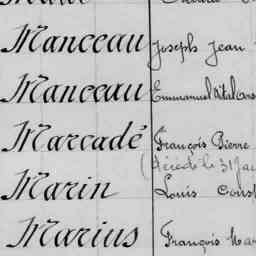 Manceau Joseph Jean
Manceau Emmanuel Vital
Marcadé François Pierre
(décédé le 31
Marin Louis Const
Marius François Mar